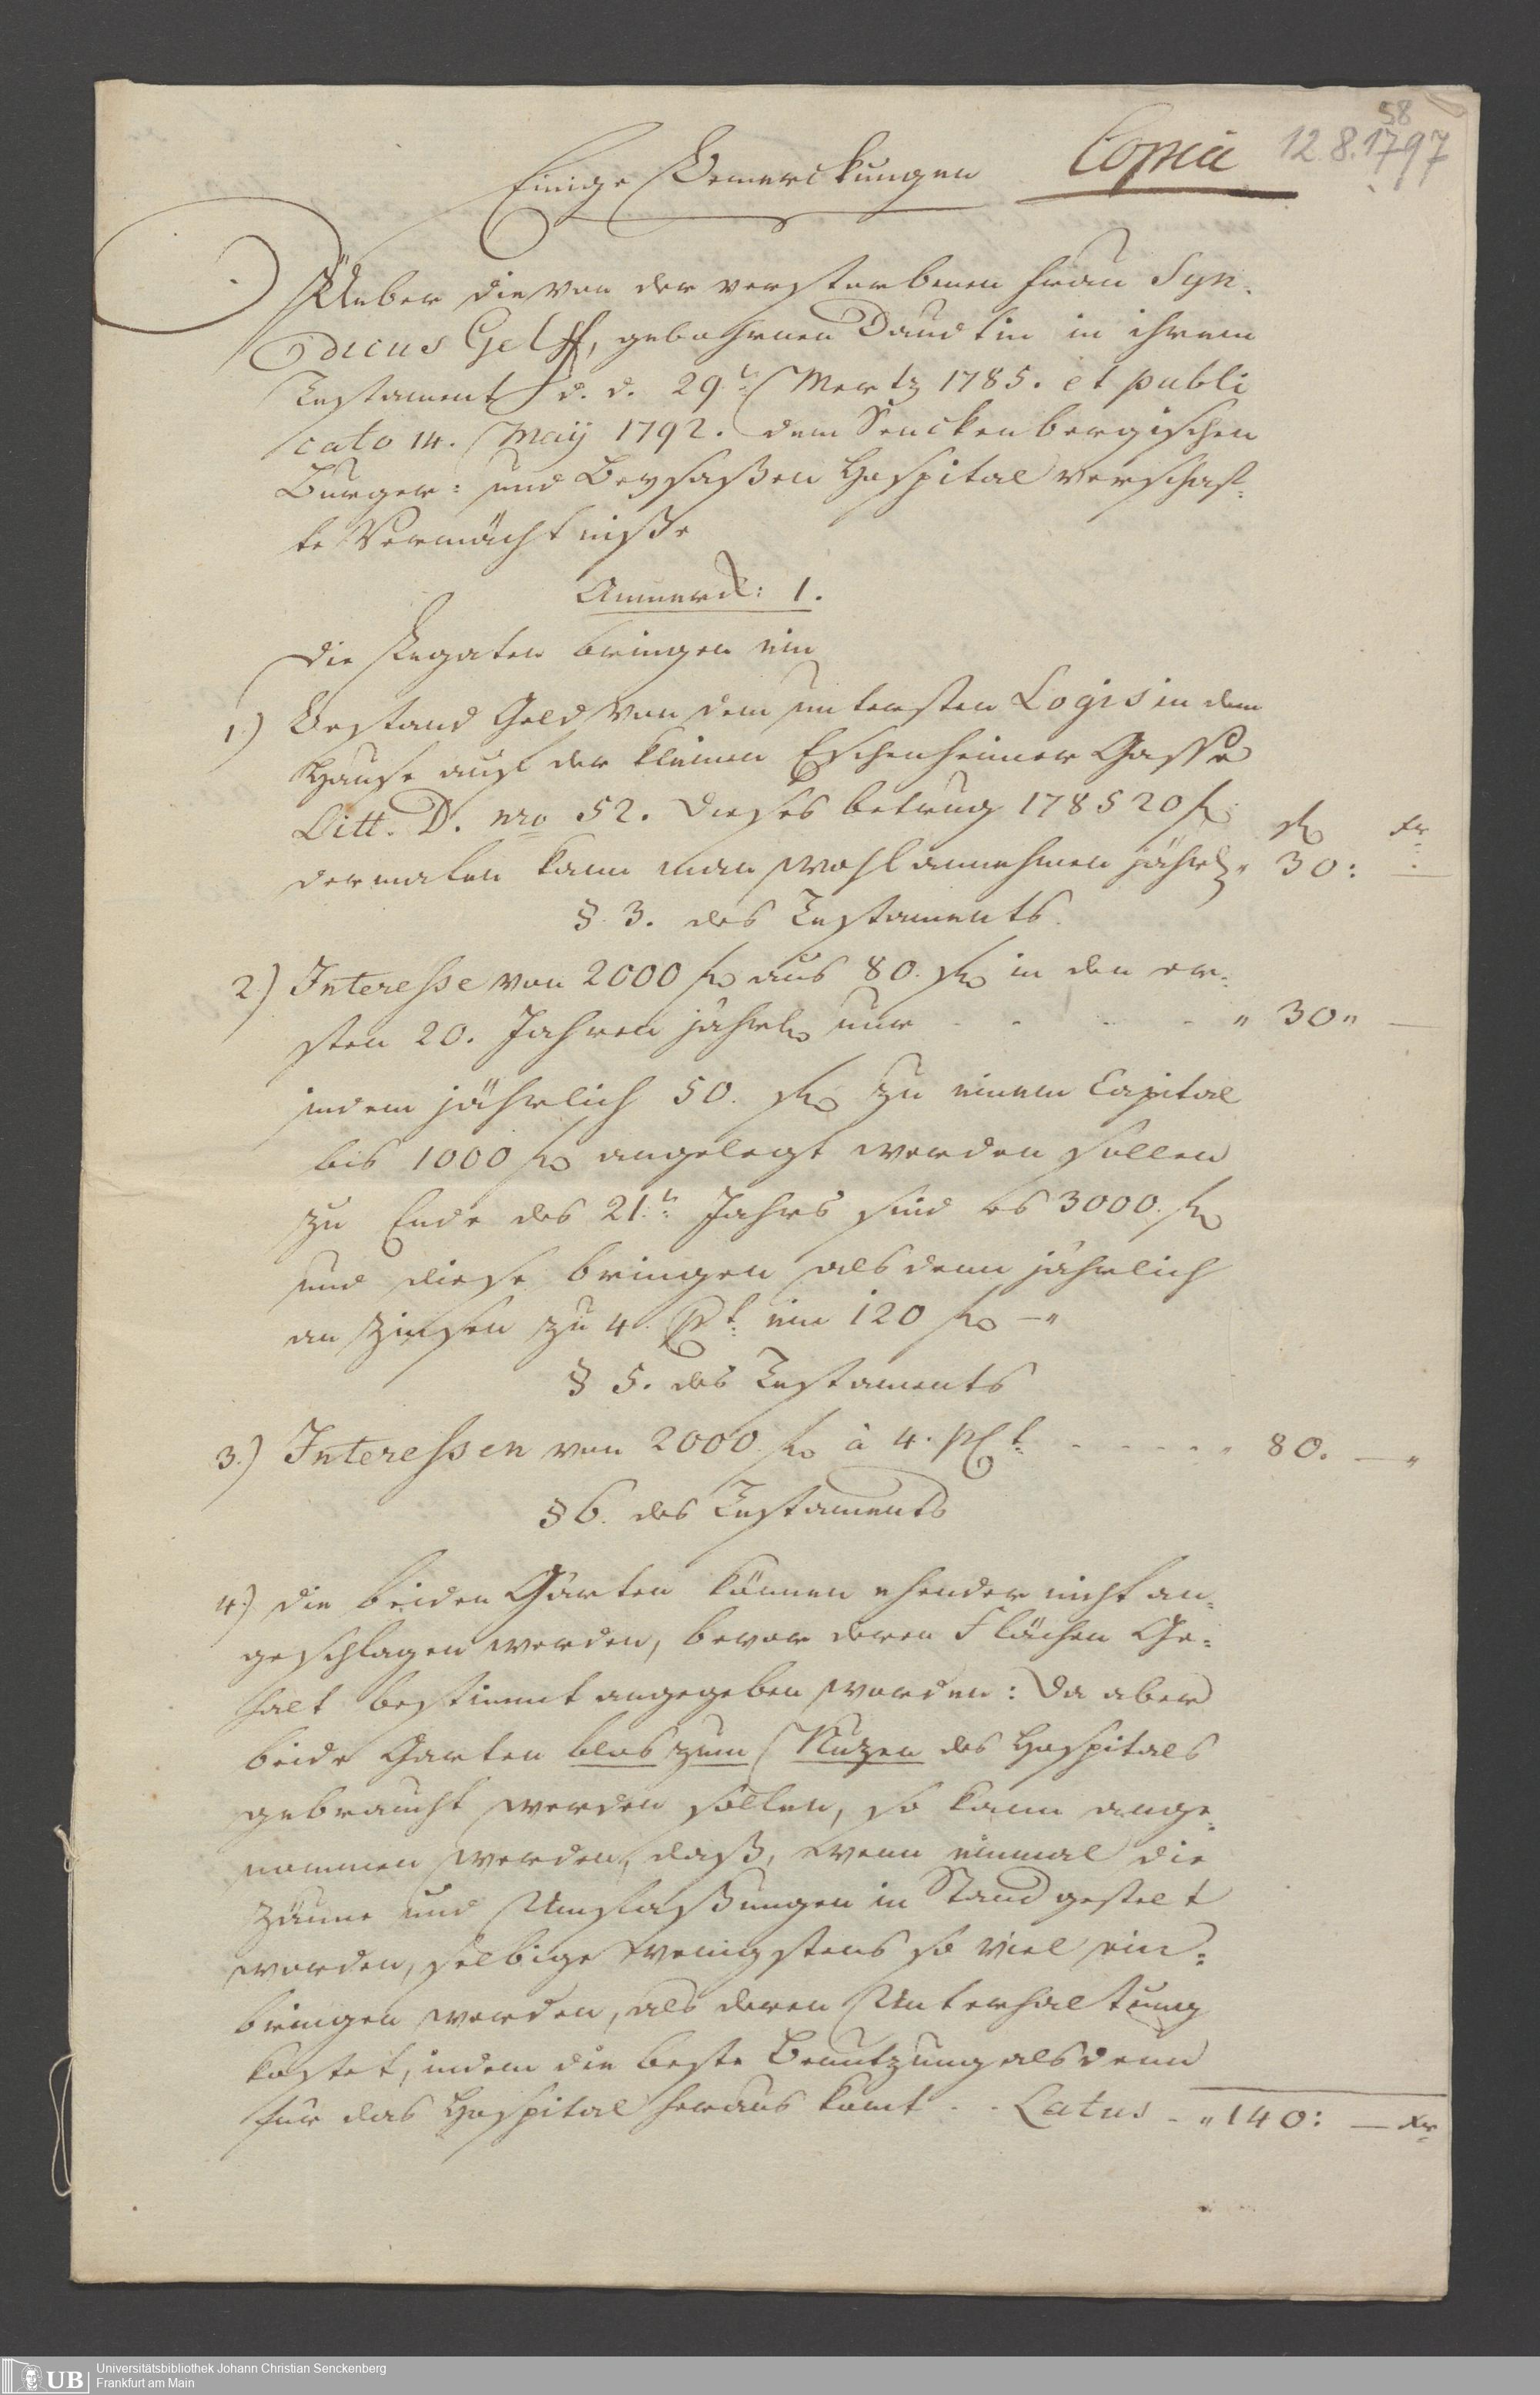 58
Einige Bemerckungen Copia 12.8.1797
Ueber die von der verstorbenen Frau Syn-
dicus Gelff, gebohrnen Daudtin in ihrem
Testament d. d. 29.t Mertz 1785. et publi
cato 14. Maÿ 1792. dem Senckenbergischen
Burger- und Beysaßen Hospital verschaf-
te Vermächtniße
Anmerck: 1.
Die Legaten bringen ein
1.) Bestand Geld von dem untersten Logis in dem
Hause auf der kleinen Eschenheimer Gasse
Litt. D. nro 52. dieses betrug 1785 20 f. fl Xr
dermalen kann man wohl annehmen jährl. " 30: -
§. 3. des Testaments.
2.) Interesse von 2000 fl aus 80. fl in den er-
sten 20. Jahren jährl. nur - - - - " 30 " -
indem jährlich 50. fl zu einem Capital
bis 1000 fl angelegt werden sollen
zu Ende des 21.t Jahrs sind es 3000. fl
und diese bringen alsdann jährlich
an Zinsen zu 4. PCt. ein 120 fl - "
§ 5. des Testaments
3.) Interessen von 2000. fl à 4. PCt. - - - - - " 80. - "
§ 6. des Testaments
4.) die beiden Gärten können ehender nicht an-
geschlagen werden, bevor deren Flächen Ge-
halt bestimmt angegeben worden: Da aber
beide Garten blos zum Nuzen des Hospitals
gebraucht werden sollen, so kann ange-
nommen werden, daß, wenn einmal die
Zäune und Umfaßungen in Stand gestelt
worden, selbige wenigstens so viel ein-
bringen werden, als deren Unterhaltung
kostet, indem die beste Benutzung alsdenn
für das Hospital heraus komt - - Latus - " 140: - Xr
UB Universitätsbibliothek Johann Christian Senckenberg
Frankfurt am Main